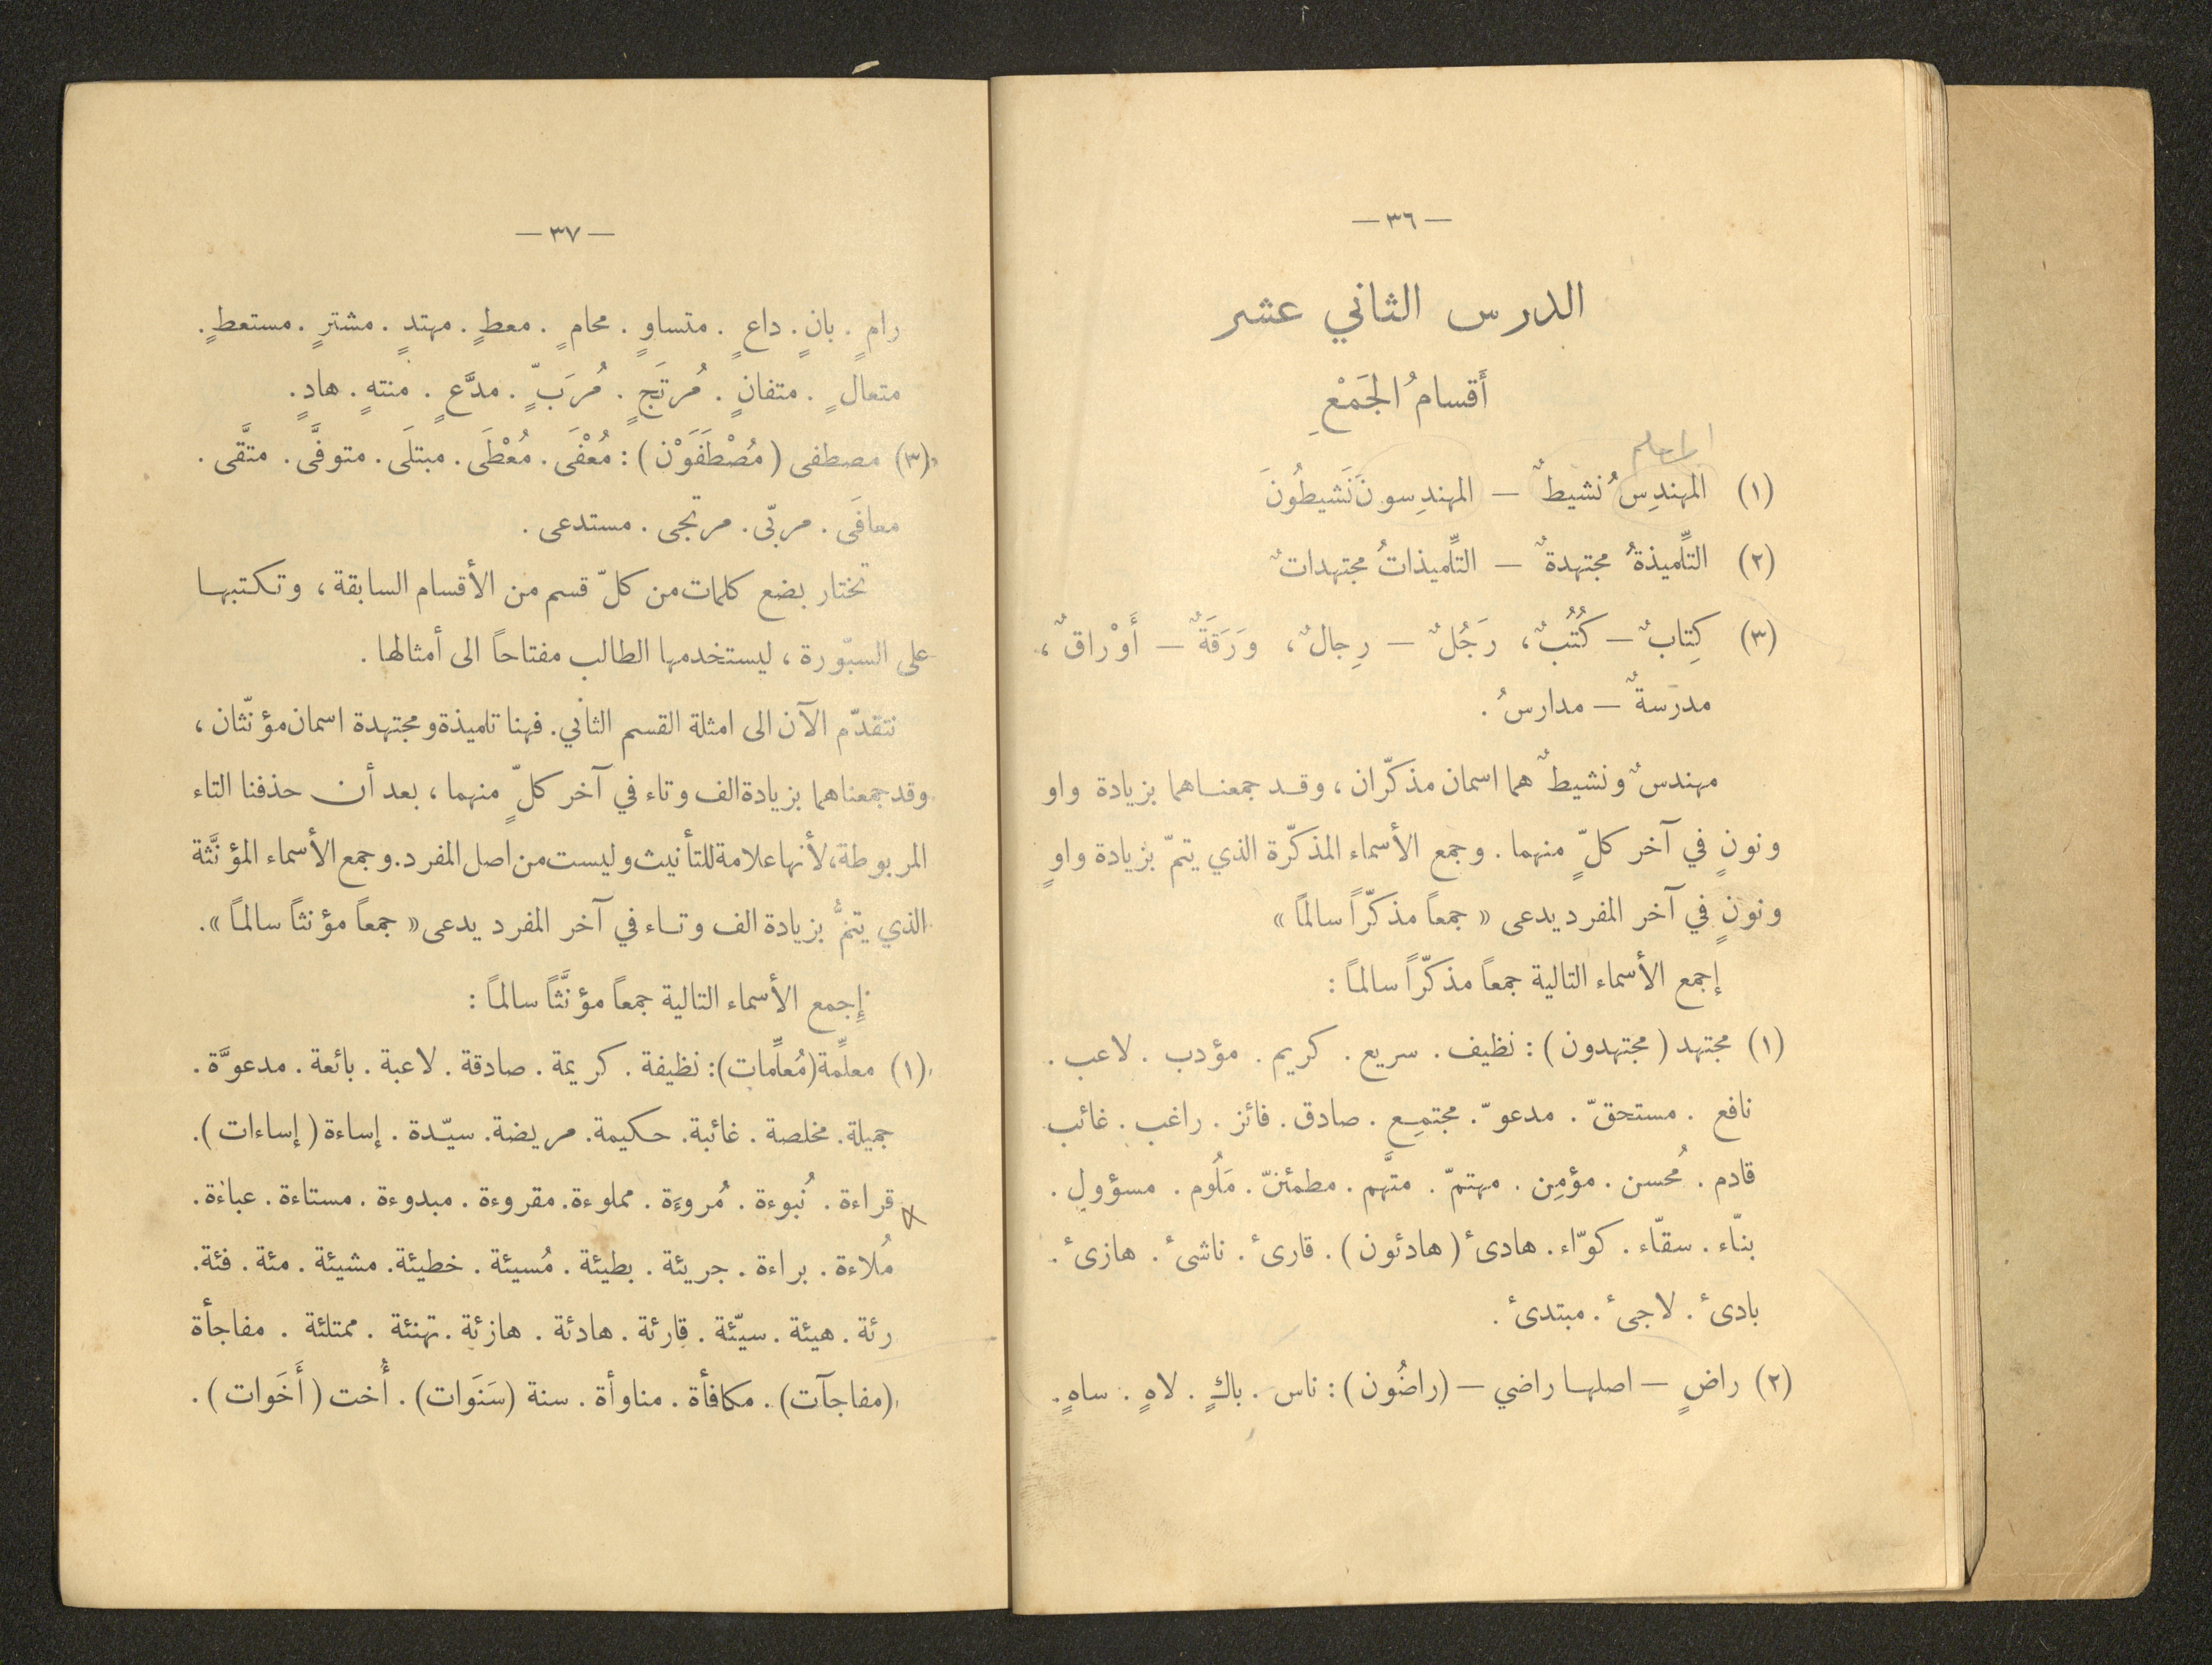 — ٣٦ —
الدرس الثاني عشر
أَقسامُ الجَمْعِ
(١) المهندِسُ نشيطٌ — المهندِسونَ نَشيطُونَ
(٢) التِّلميذةُ مجتهدةٌ — التِّلميذاتُ مجتهداتٌ
(٣) كِتابٌ — كُتُبٌ، رَجُلٌ — رِجالٌ، وَرَقَةٌ — أَوْراقٌ،
مدرسةٌ — مدارسُ.
مهندسٌ ونشيطٌ هما اسمان مذكّران، وقد جمعناهما بزيادة واو
ونونٍ في آخر كلٍّ منهما. وجمع الأسماء المذكّرة الذي يتمّ بزيادة واوٍ
ونونٍ في آخر المفرد يدعى « جمعاً مذكّراً سالماً »
إجمع الأسماء التالية جمعاً مذكّراً سالماً :
(١) مجتهد (مجتهدون) : نظيف. سريع. كريم. مؤدب. لاعب.
نافع. مستحقّ. مدعوّ. مجتمِع. صادق. فائز. راغب. غائب
قادم. مُحسن. مؤمِن. مهتمّ. متَّهم. مطمئنّ. مَلُوم. مسؤول.
بنّاء. سقّاء. كوّاء. هادىٴ (هادئون). قارىٴ. ناشىٴ. هازىٴ.
بادىٴ. لاجىٴ. مبتدىٴ.
(٢) راضٍ — اصلها راضي — (راضُون) : ناس. باكٍ. لاهٍ. ساهٍ.
— ٣٧ —
رامٍ. بانٍ. داعٍ. متساوٍ. محامٍ. معطٍ. مهتدٍ. مشترٍ. مستعطٍ.
متعالٍ. متفانٍ. مُرتَجٍ. مُرَبٍّ. مدَّعٍ. منتهٍ. هادٍ.
(٣) مصطفى (مُصْطَفَوْن) : مُعْفَى. مُعْطَى. مبتلَى. متوفَّى. متَّقى.
معافَى. مربّى. مرتجى. مستدعى.
تختار بضع كلمات من كلّ قسم من الأقسام السابقة، وتكتبها
على السبّورة، ليستخدمها الطالب مفتاحاً الى أمثالها.
نتقدّم الآن الى امثلة القسم الثاني. فهنا تلميذة ومجتهدة اسمان مؤنّثان،
وقد جمعناهما بزيادة الف وتاء في آخر كلٍّ منهما، بعد أن حذفنا التاء
المربوطة، لأنها علامة للتأنيث وليست من اصل المفرد. وجمع الأسماء المؤنَّثة
الذي يتمُّ بزيادة الف وتاء في آخر المفرد يدعى « جمعاً مؤنثاً سالماً ».
إِجمع الأسماء التالية جمعاً مؤنَّثاً سالماً :
(١) معلِّمة (مُعلِّمات) : نظيفة. كريمة. صادقة. لاعبة. بائعة. مدعوَّة.
جميلة. مخلصة. غائبة. حكيمة. مريضة. سيّدة. إساءة (إساءات).
قراءة. نُبوءة. مُروءَة. مملوءة. مقروءة. مبدوءة. مستاءة. عباءة.
مُلاءة. براءة. جريئة. بطيئة. مُسيئة. خطيئة. مشيئة. مئة. فئة.
رئة. هيئة. سيّئة. قارئة. هادئة. هازئة. تهنئة. ممتلئة. مفاجأة
(مفاجآت). مكافأة. مناوأة. سنة (سَنَوات). أُخت (أَخَوات).